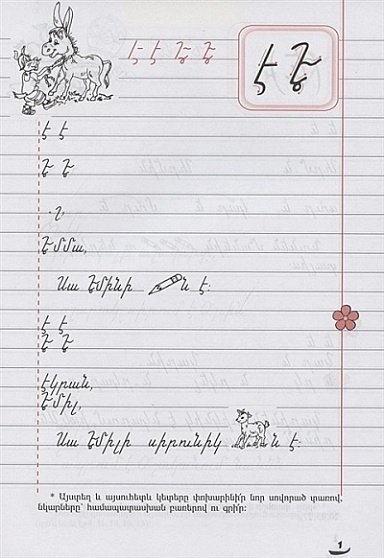 է է Է Է
է Է
է է
Է Է
.շ
Էմմա,
Սա Էմինի ն է։
է է
Է Է
էկրան,
Էմիլ,
Սա Էմիլի սիրունիկ ն է։
* Այստեղ և այսուհետև կետերը փոխարինի՛ր նոր սովորած տառով,
նկարները՝ համապատասխան բառերով ու գրի՛ր։
1